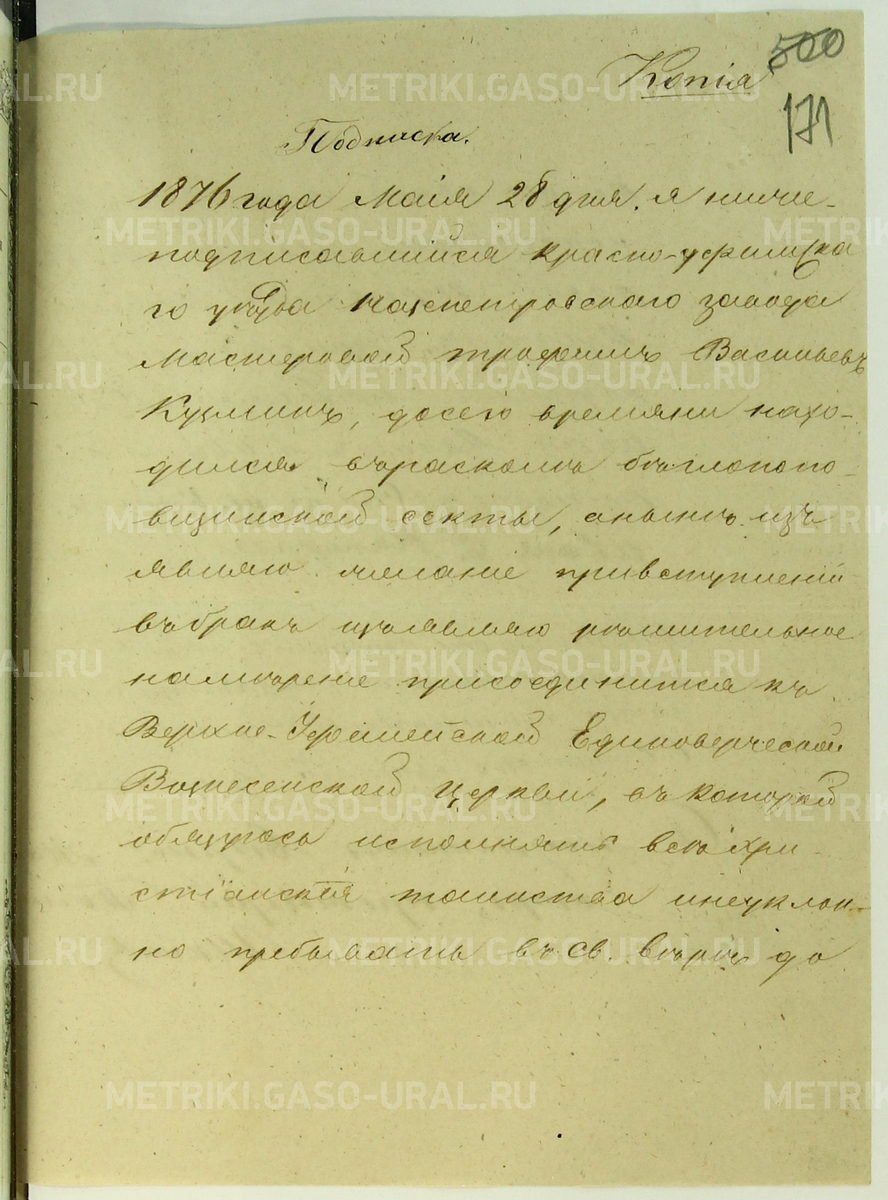 Копія
500
171
Подписка.
1876 года Маія 28 дня, я ниже-
подписавшийся красно-уфимска
го уезда нязепетровского завода
мастеровой трофимъ Васильевъ
Кузминъ, досего времяни нахо-
дился въ расколѣ бѣглопопо-
вщинской секты, анынѣ изъ
являю желаніе привступленіи
въ бракъ изъявляю решительное
намѣрение присоединится къ
Верхне-Уфалейской Единоверческой
Вознесенской церкви, въ которой
обязуюсь исполнять всѣ хри-
стіанскія таинства инеуклон-
но пребывать въ св. вѣрѣ до
METRIKI.GASO-URAL.RU